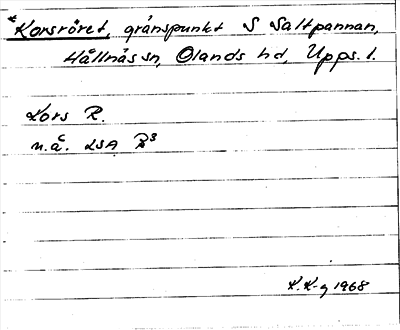 *Korsröret, gränspunkt S Saltpannan,
Hållnäs sn, Olands hd, Upps. l.
Kors R.
n.å. LSA B³
K.K-g 1968